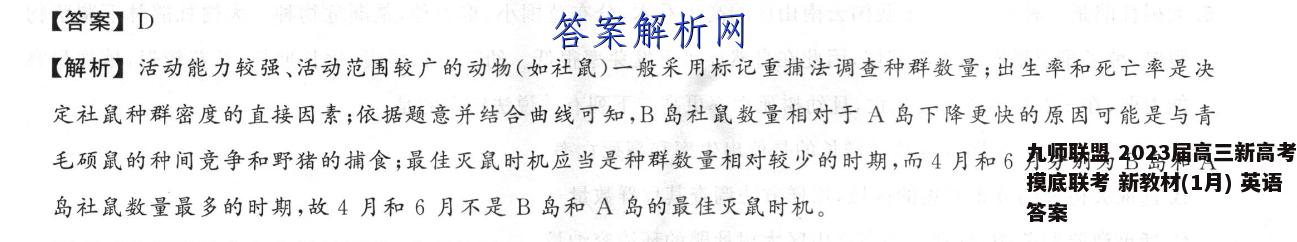 【答案】D
答案解析网
【解析】活动能力较强、活动范围较广的动物(如社鼠)一般采用标记重捕法调查种群数量;出生率和死亡率是决
定社鼠种群密度的直接因素;依据题意并结合曲线可知,B岛社鼠数量相对于A岛下降更快的原因可能是与青
毛硕鼠的种间竞争和野猪的捕食;最佳灭鼠时机应当是种群数量相对较少的时期,而4月和6月分别为B岛和A
岛社鼠数量最多的时期,故4月和6月不是B岛和A岛的最佳灭鼠时机。
九师联盟 2023届高三新高考
摸底联考 新教材(1月) 英语
答案